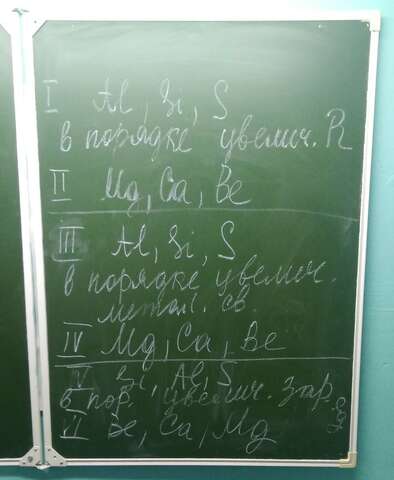 I Al, Si, S
в порядке увелич. R
II Mg, Ca, Be
III Al, Si, S
в порядке увелич.
метал. св.
IV Mg, Ca, Be
IV Si, Al, S
в пор. увелич. зар.
VI Be, Ca, Mg